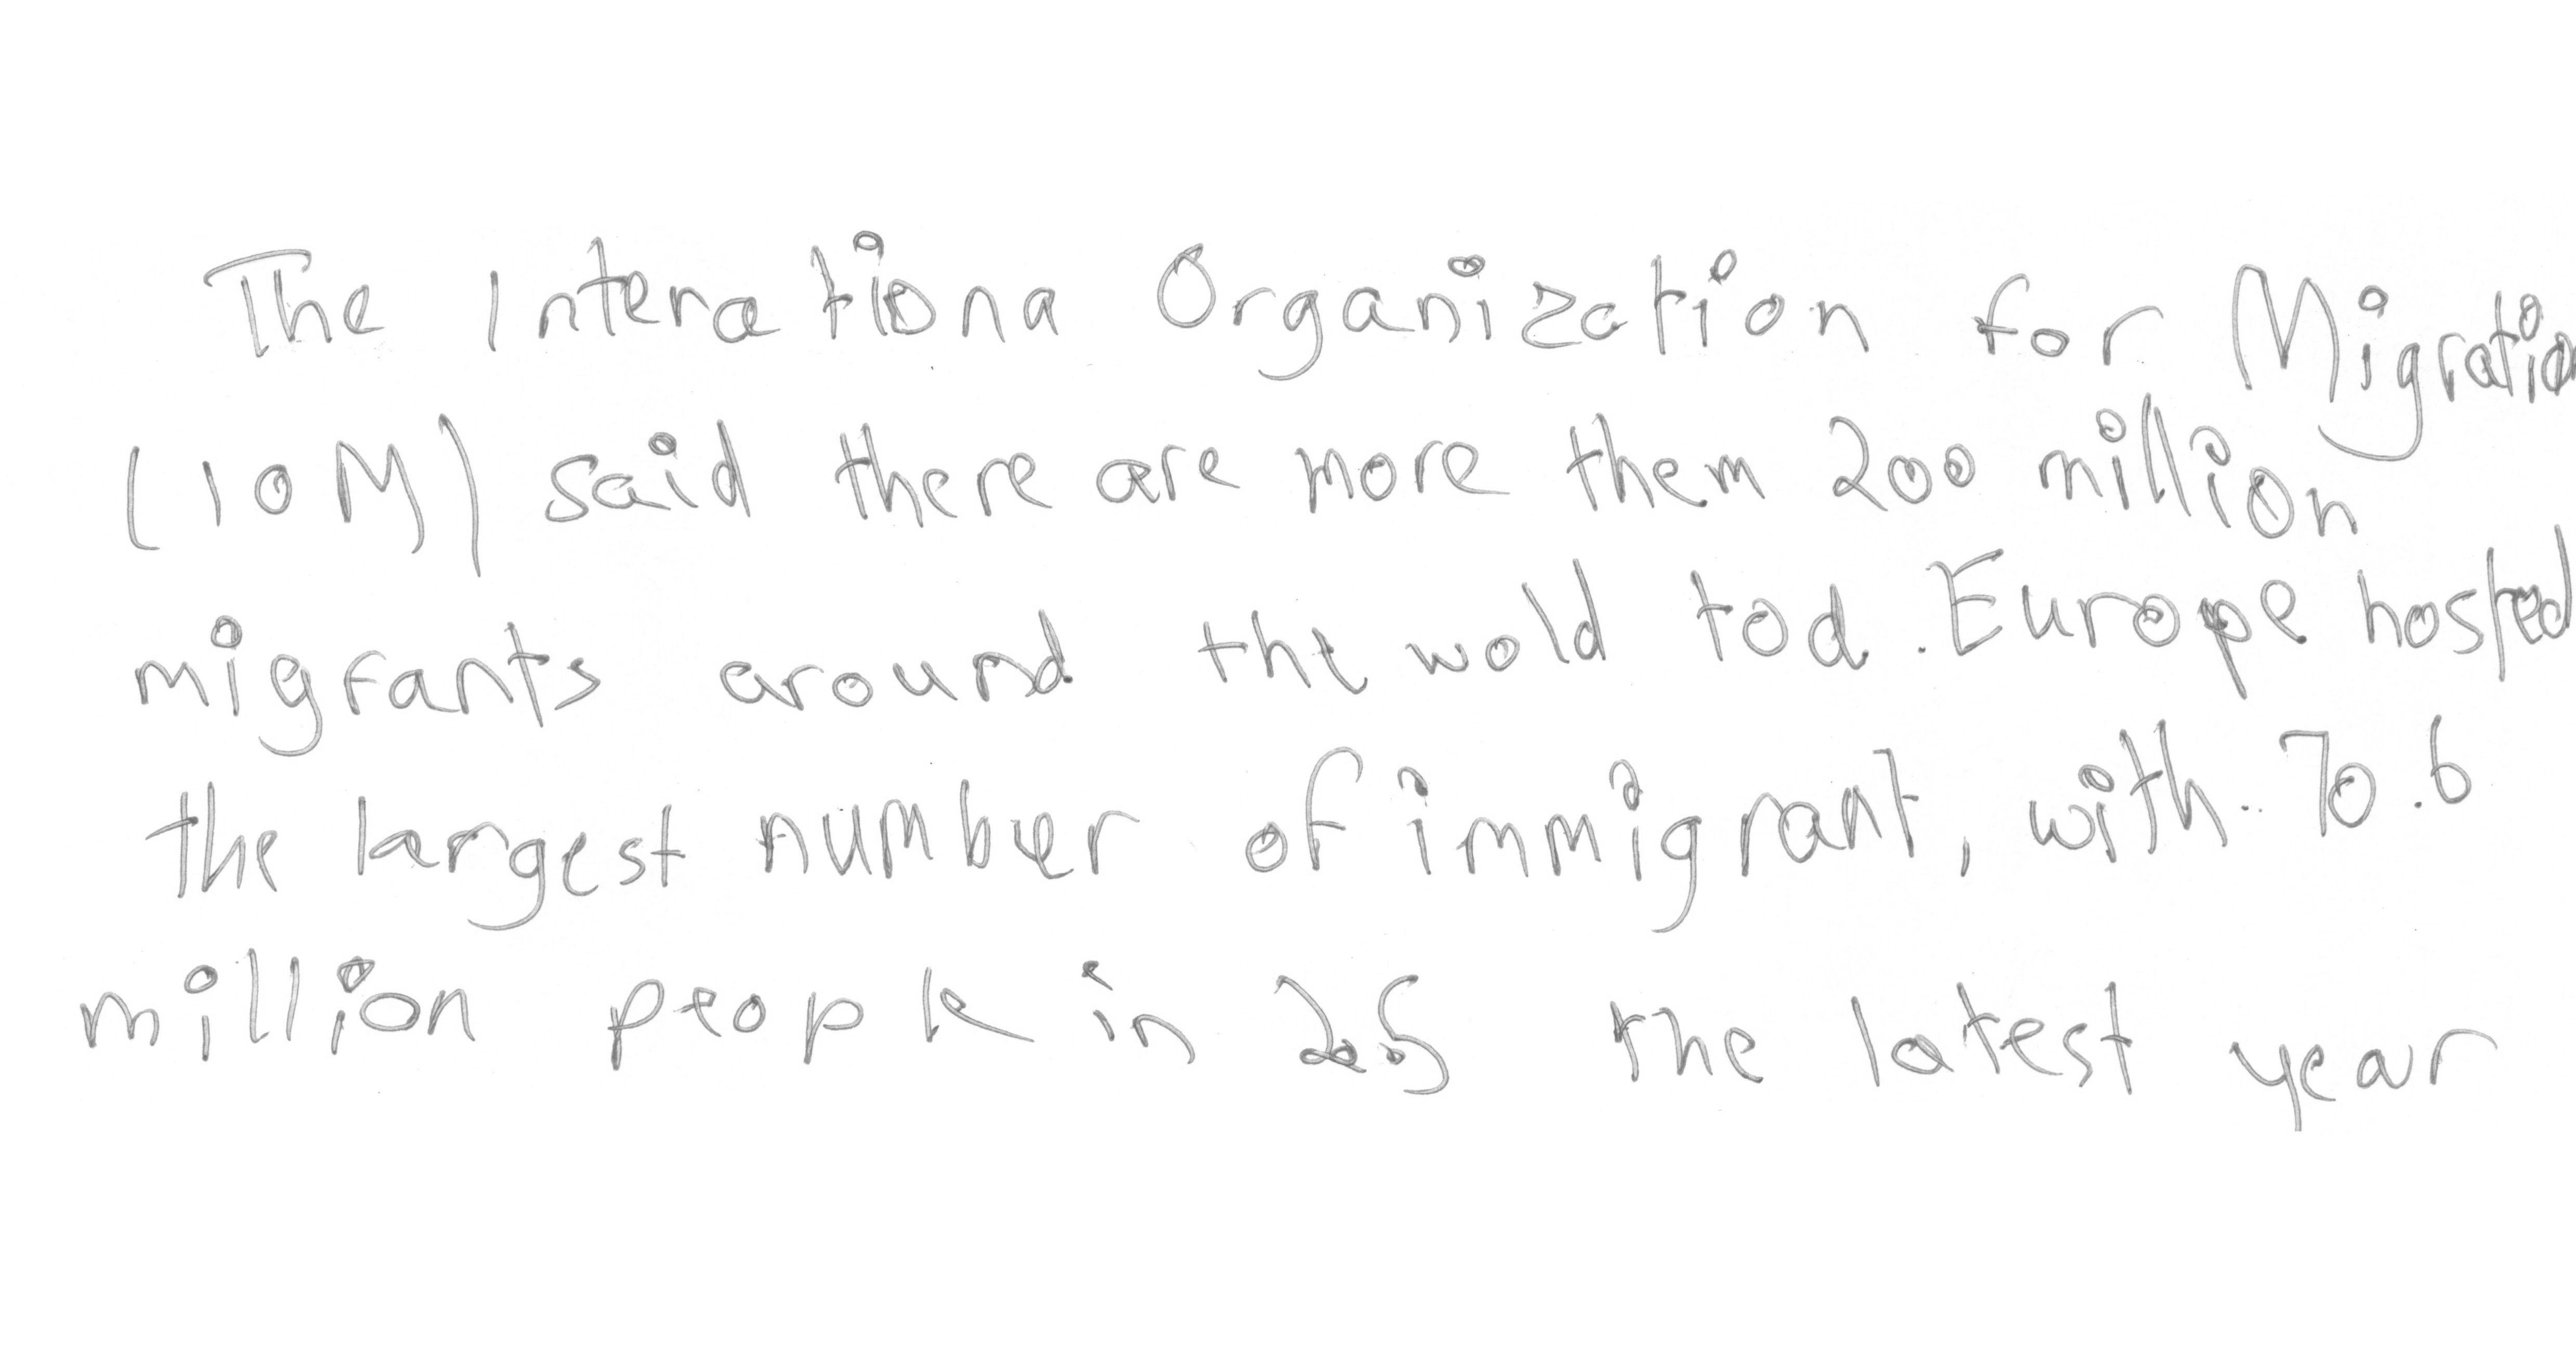 The Interationa Organization for Migration
(IOM) said there are more them 200 million
migrants around the wold tod. Europe hosted
the largest number of immigrant, with.. 70.6
million people in the latest year